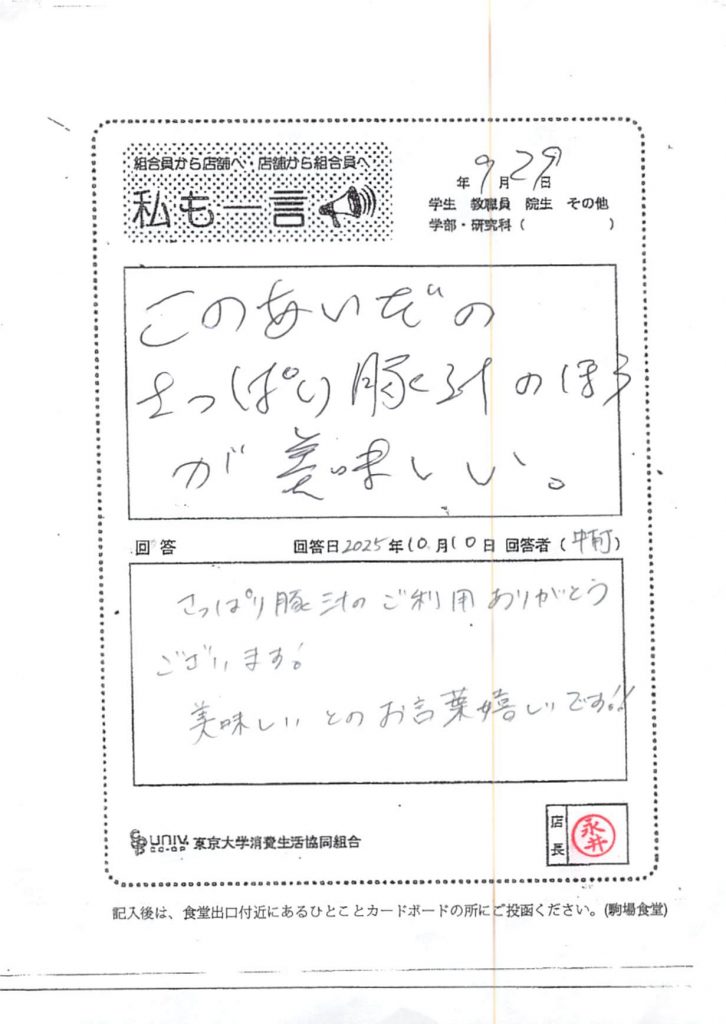 組合員から店舗へ・店舗から組合員へ
私も一言
年 9月 29日
学生 教職員 院生 その他
学部・研究科 ( )
このあいだの
さっぱり豚汁のほう
が美味しい。
回答
回答日 2025年10月10日 回答者 (中町)
さっぱり豚汁のご利用ありがとう
ございます!
美味しいとのお言葉嬉しいです!!
UNIV. CO-OP 東京大学消費生活協同組合
店長
永井
記入後は、食堂出口付近にあるひとことカードボードの所にご投函ください。(駒場食堂)